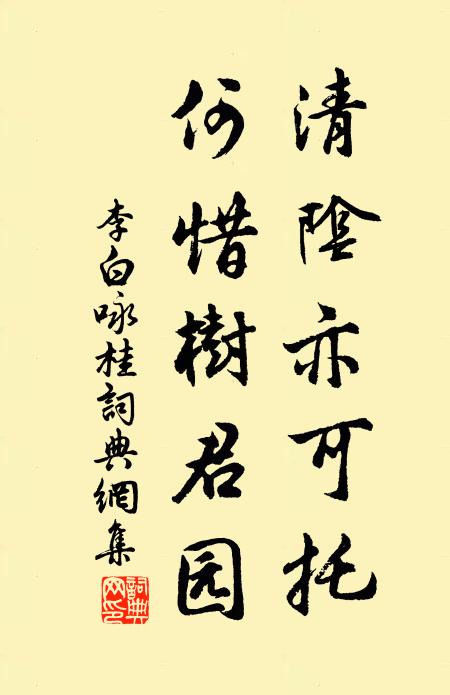 清陰亦可托
何惜樹君园
李白咏桂詞典網集
詞典
网印